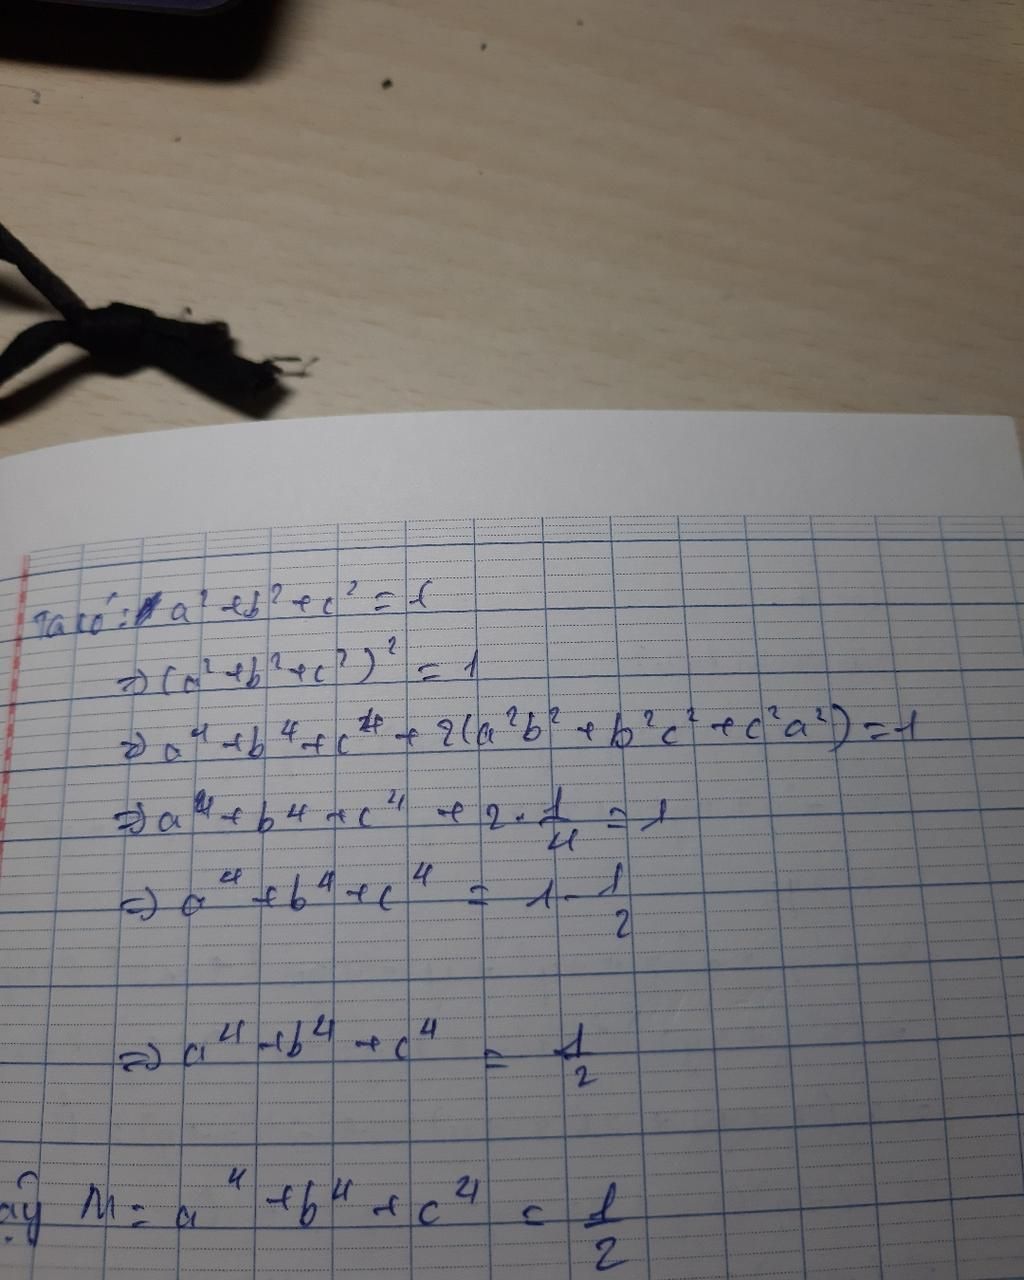 Ta có: a² + b² + c² = 1
⇒ (a² + b² + c²)² = 1
⇒ a⁴ + b⁴ + c⁴ + 2(a²b² + b²c² + c²a²) = 1
⇒ a⁴ + b⁴ + c⁴ + 2 · 1/4 = 1
⇒ a⁴ + b⁴ + c⁴ = 1 - 1/2
⇒ a⁴ + b⁴ + c⁴ = 1/2
ậy M = a⁴ + b⁴ + c⁴ = 1/2